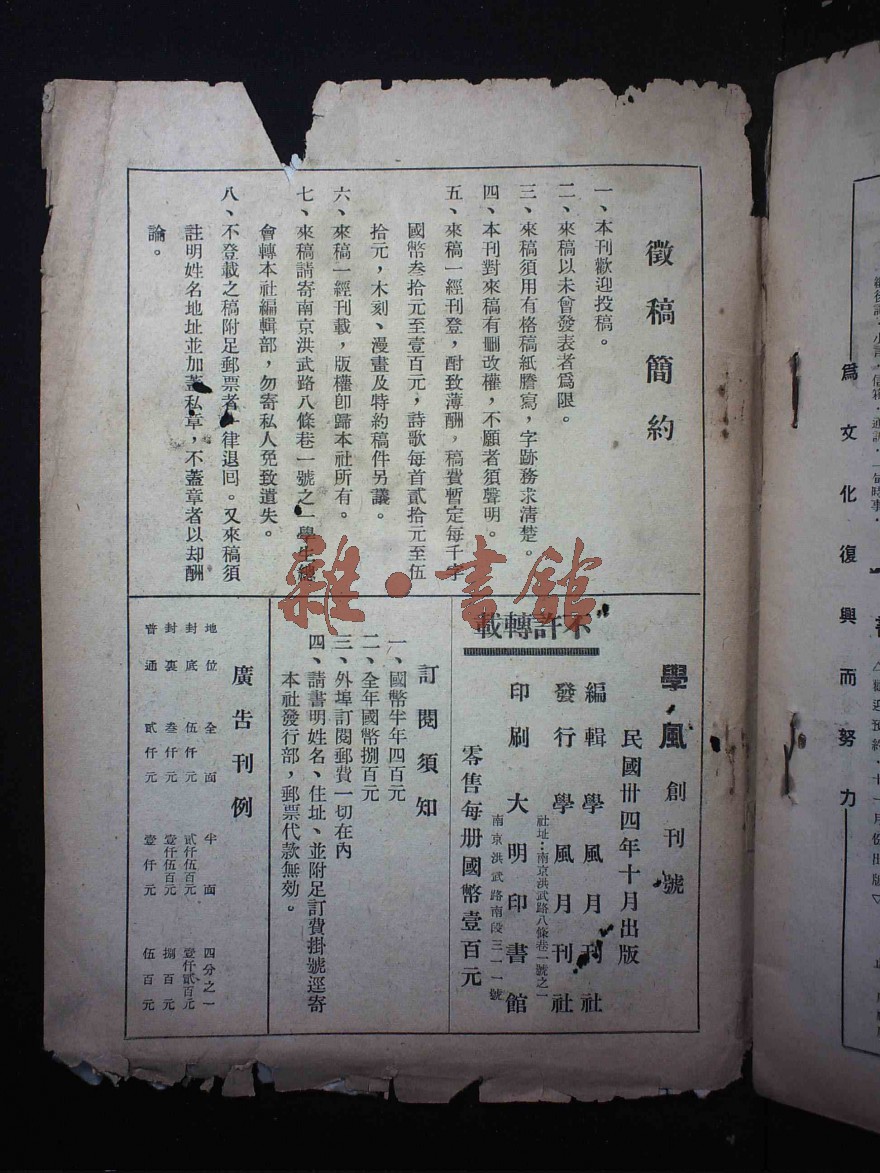 徵稿簡約
一、本刊歡迎投稿。
二、來稿以未會發表者爲限。
三、來稿須用有格稿紙謄寫，字跡務求清楚。
四、本刊對來稿有删改權，不願者須聲明。
五、來稿一經刊登，酎致薄酬，稿費暫定每千字
國幣叁拾元至壹百元，詩歌每首貳拾元至伍
拾元，木刻、漫畫及特約稿件另議。
六、來稿一經刊載，版權卽歸本社所有。
七、來稿請寄南京洪武路八條巷一號之一學生總
會轉本社編輯部，勿寄私人免致遺失。
八、不登載之稿附足郵票者一律退回。又來稿須
註明姓名地址並加蓋私章，不蓋章者以却酬
論。
學風創刊號
民國卅四年十月出版
編輯 學風月刊社
發行 學風月刊社
社址：南京洪武路八條巷一號之一
印刷 大明印書館
南京洪武路南段三一一號
零售每册國幣壹百元
不許轉載
訂閱須知
一、國幣半年四百元
二、全年國幣捌百元
三、外埠訂閱郵費一切在內
四、請書明姓名、住址、並附足訂費掛號逕寄
本社發行部，郵票代款無効。
廣告刊例
地位 全面 半面 四分之一
封底 伍仟元 貳仟伍百元 壹仟貳百元
封裏 叁仟元 壹仟伍百元 捌百元
普通 貳仟元 壹仟元 伍百元
雜·書館
爲文化復興而努力